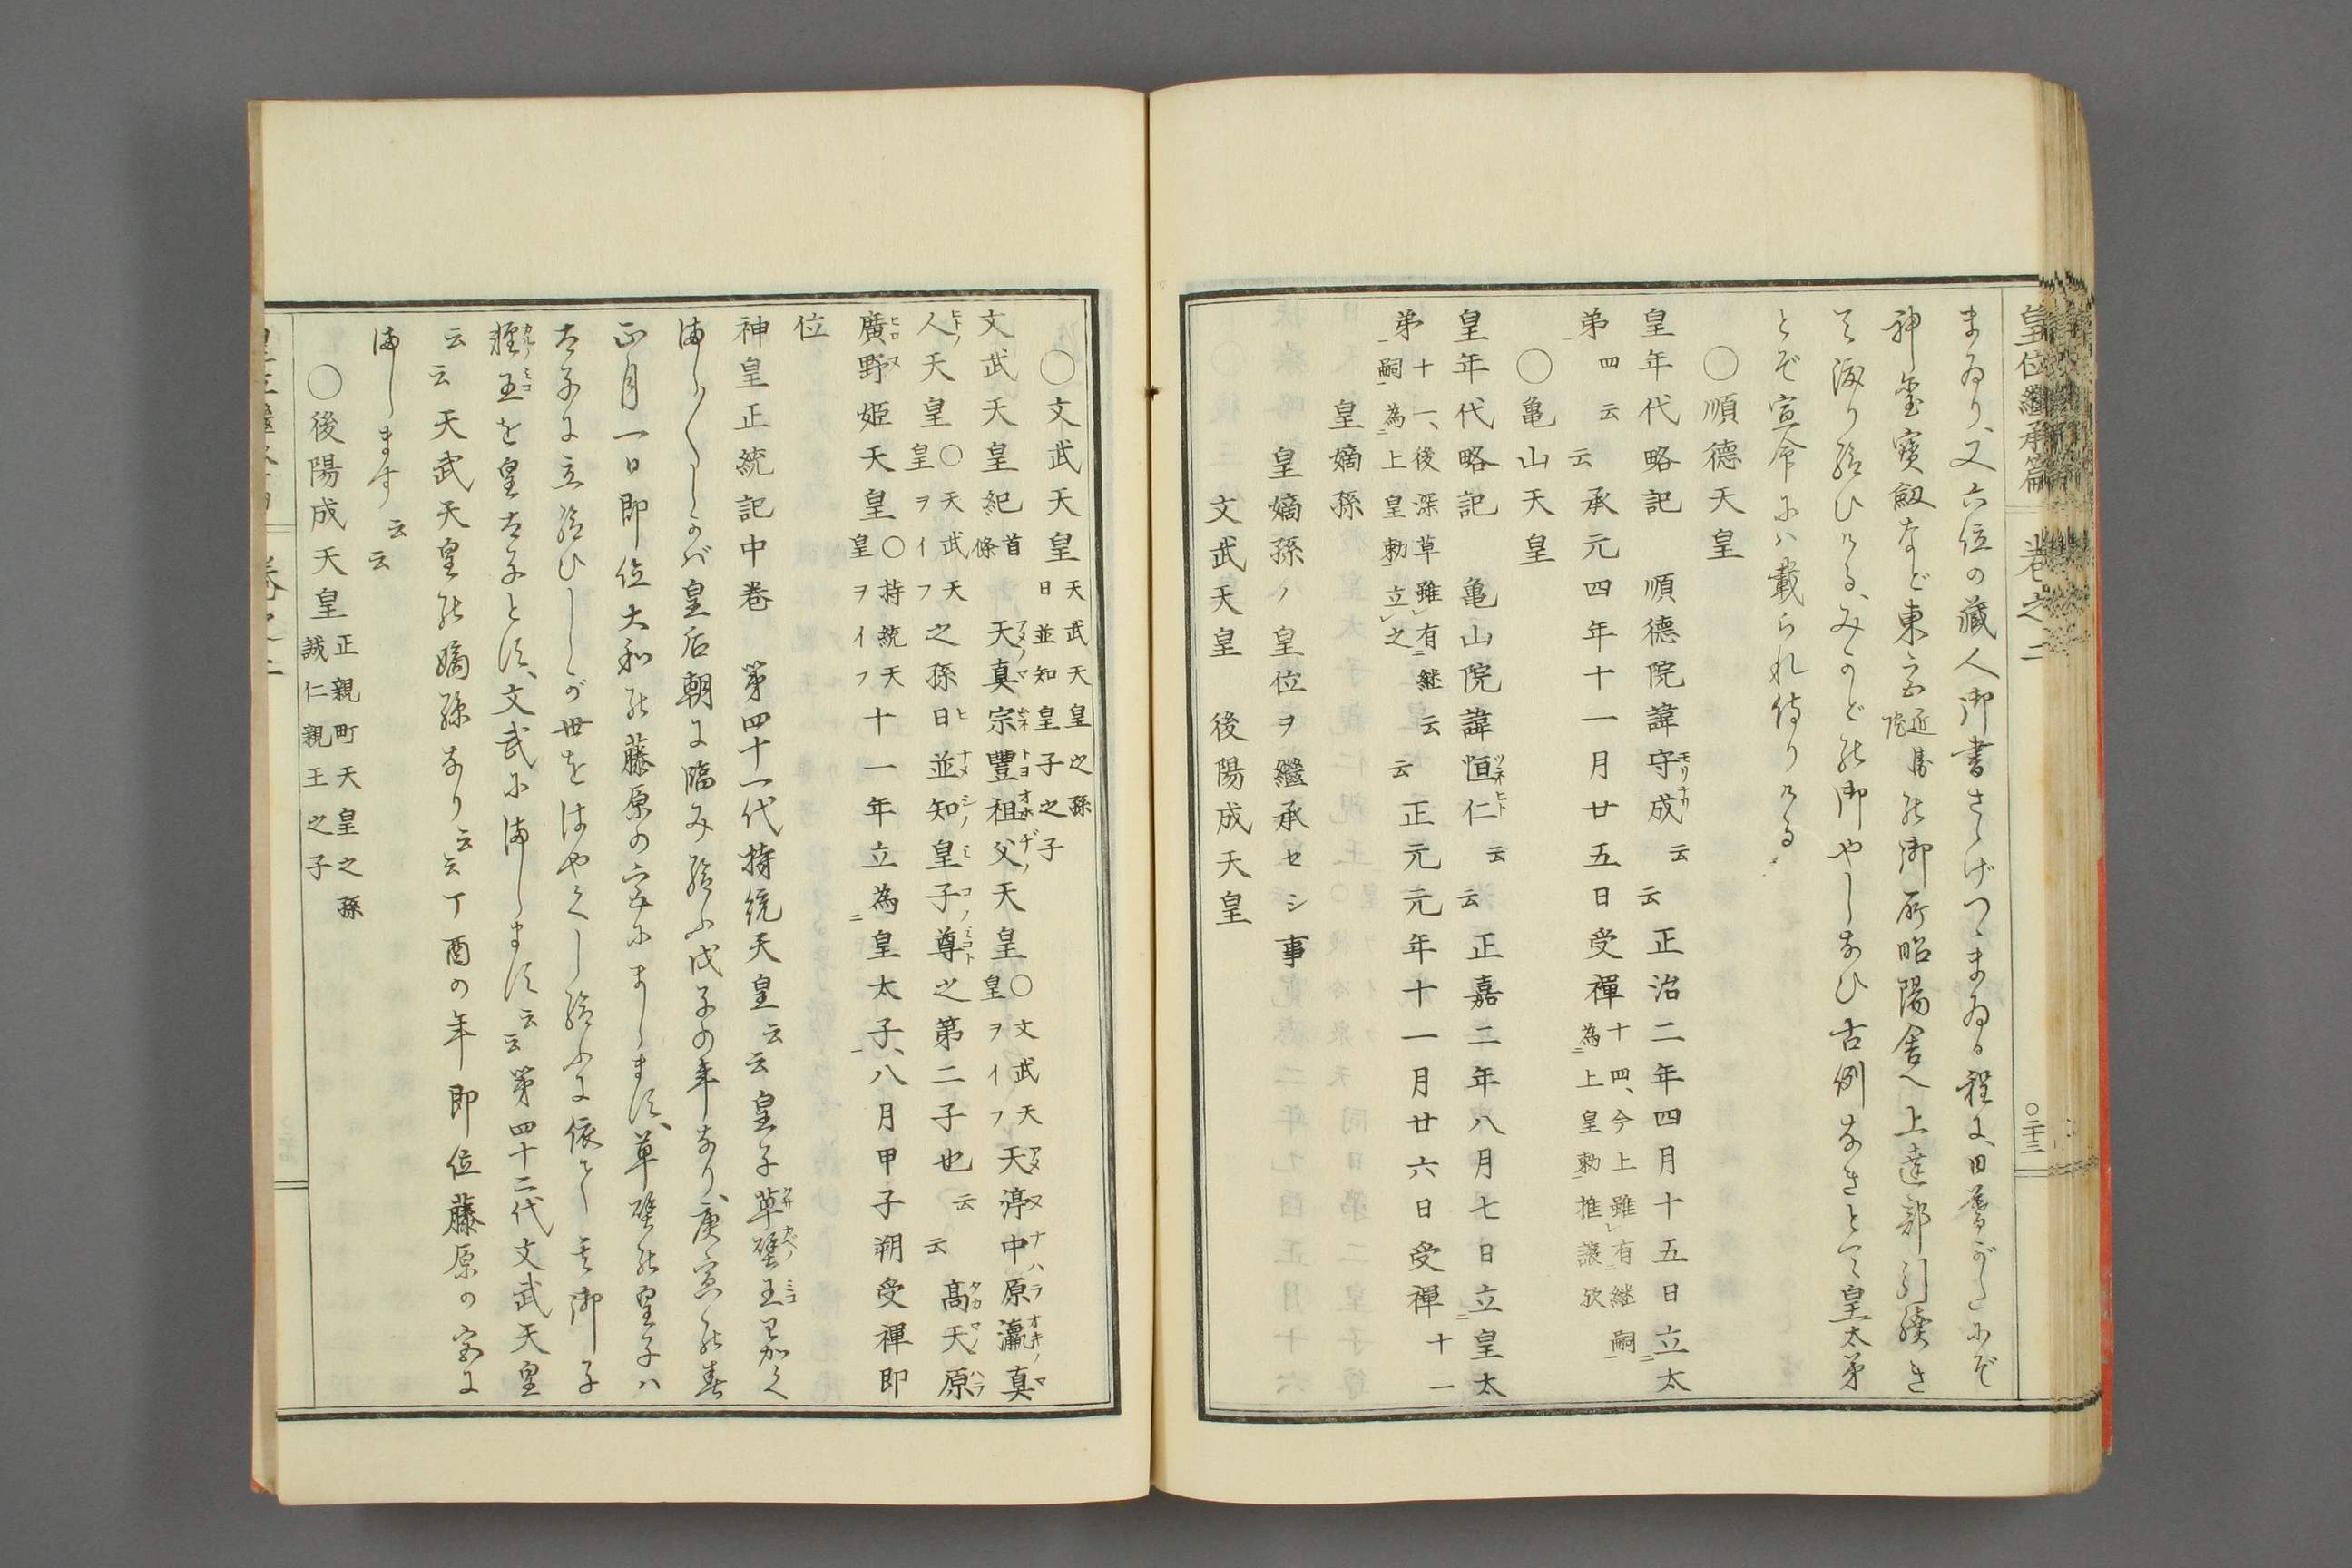 皇位繼承篇 巻之二 〇二十三
まゐり、又六位の藏人御書さゝげつゝまゐる程に、
神璽寶劔など東宮の御所昭陽舎へ上達部引續き
て渡り給ひける、みかどの御やしなひ古例なきとて皇太弟
とぞ宣命には載られ侍りける
〇順德天皇
皇年代略記 順德院諱守成云云正治二年四月十五日立太
弟四云云承元四年十一月廿五日受禪十四、今上雖有継嗣為上皇勅推讓歟
〇亀山天皇
皇年代略記 亀山院諱恒仁云云正嘉二年八月七日立皇太
弟十一、後深草雖有継嗣為上皇勅立之云云正元元年十一月廿六日受禪十一
皇嫡孫
皇嫡孫ノ皇位ヲ繼承セシ事
文武天皇 後陽成天皇
〇文武天皇天武天皇之孫日並知皇子之子
文武天皇紀首條 天真宗豐祖父天皇〇文武天皇ヲイフ天渟中原瀛真
人天皇〇天武天皇ヲイフ之孫日並知皇子尊之第二子也云云高天原
廣野姫天皇〇持統天皇ヲイフ十一年立為皇太子、八月甲子朔受禪即
位
神皇正統記中巻 第四十一代持統天皇云云皇子草壁王わかく
ましましゝかば皇后朝に臨み給ふ戊子の年なり、庚寅の春
正月一日即位大和の藤原の宮にまします、草壁の皇子ハ
太子に立給ひしが世をはやくし給ふに依て其御子
輕王を皇太子とす、文武にまします云云第四十二代文武天皇
云云天武天皇の嫡孫なり云云丁酉の年即位藤原の宮に
まします云云
〇後陽成天皇正親町天皇之孫誠仁親王之子